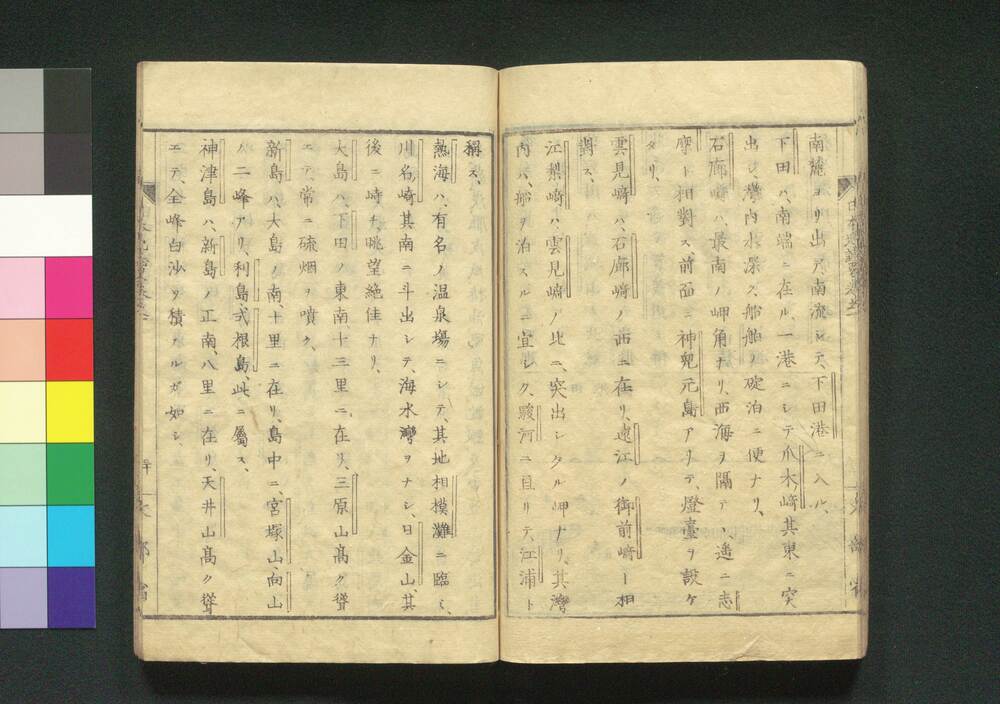 南麓ヨリ出デ、南流シテ、下田港ニ入ル、
下田ハ、南端ニ在ル、一港ニシテ、爪木﨑其東ニ突
出シ、灣内水深ク、船舶ノ碇泊ニ便ナリ、
石廊﨑ハ、最南ノ岬角ナリ、西海ヲ隔テ、遙ニ志
摩ト相對ス、前面ニ神兒元島アリテ、燈臺ヲ設ケ
タリ、
雲見﨑ハ、石廊﨑ノ西ニ在リ、遠江ノ御前﨑ト相
對ス、
江梨﨑ハ、雲見﨑ノ北ニ、突出シタル岬ナリ、其灣
内ハ、船ヲ泊スルニ宜シク、駿河ニ亘リテ、江浦ト
稱ス、
熱海ハ、有名ノ温泉塲ニシテ、其地相模灘ニ臨ミ、
川名﨑其南ニ斗出シテ、海水灣ヲナシ、日金山、其
後ニ峙チ、眺望絶佳ナリ、
大島ハ、下田ノ東南、十三里ニ在リ、三原山髙ク聳
エテ、常ニ硫烟ヲ噴ク、
新島ハ、大島ノ南、十里ニ在リ、島中ニ、宮塚山、向山
ノ二峰アリ、利島、式根島、此ニ屬ス、
神津島ハ、新島ノ正南、八里ニ在リ、天井山髙ク聳
エテ、全峰白沙ヲ積メルガ如シ、